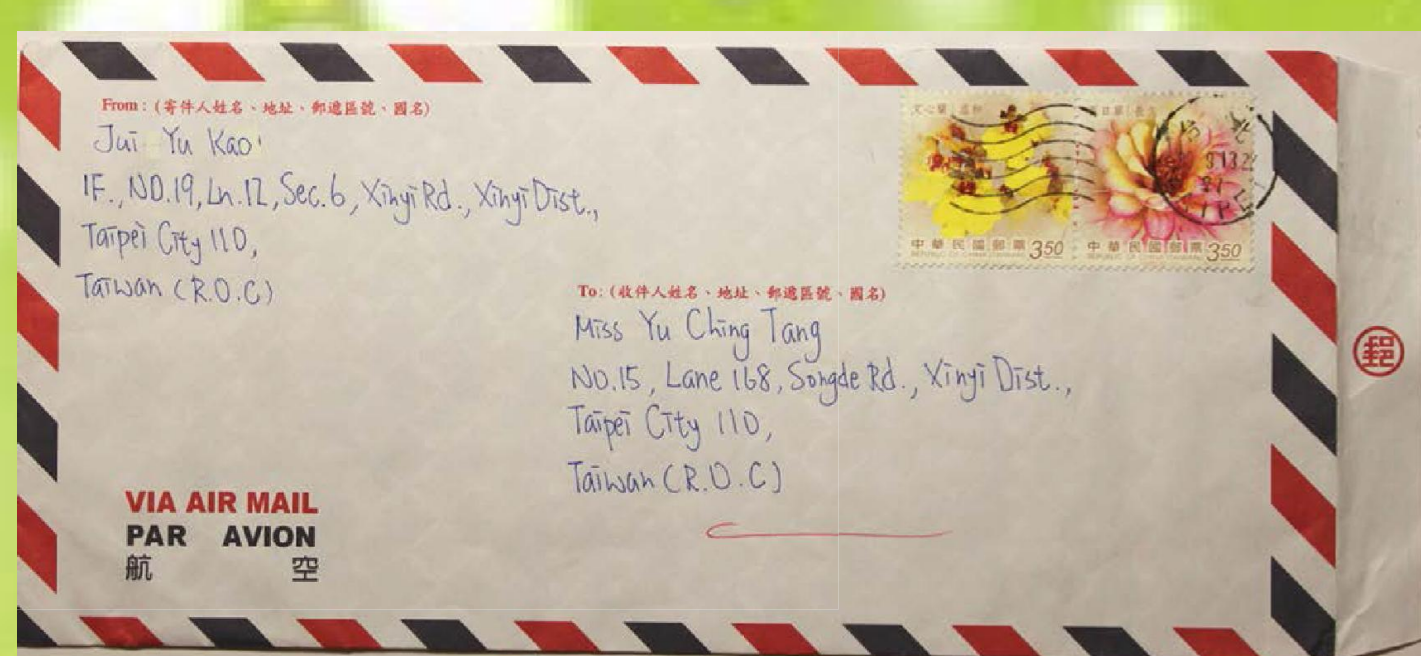 From : (寄件人姓名、地址、郵遞區號、國名)
Jui Yu Kao
1F., NO.19, Ln.12, Sec.6, Xinyi Rd., Xinyi Dist.,
Taipei City 110,
Taiwan (R.O.C)
文心蘭
中華民國郵票 350
REPUBLIC OF CHINA (TAIWAN)
中華民國郵票 350
REPUBLIC OF CHINA (TAIWAN)
To: (收件人姓名、地址、郵遞區號、國名)
Miss Yu Ching Tang
NO.15, Lane 168, Songde Rd., Xinyi Dist.,
Taipei City 110,
Taiwan (R.O.C)
VIA AIR MAIL
PAR AVION
航 空
郵